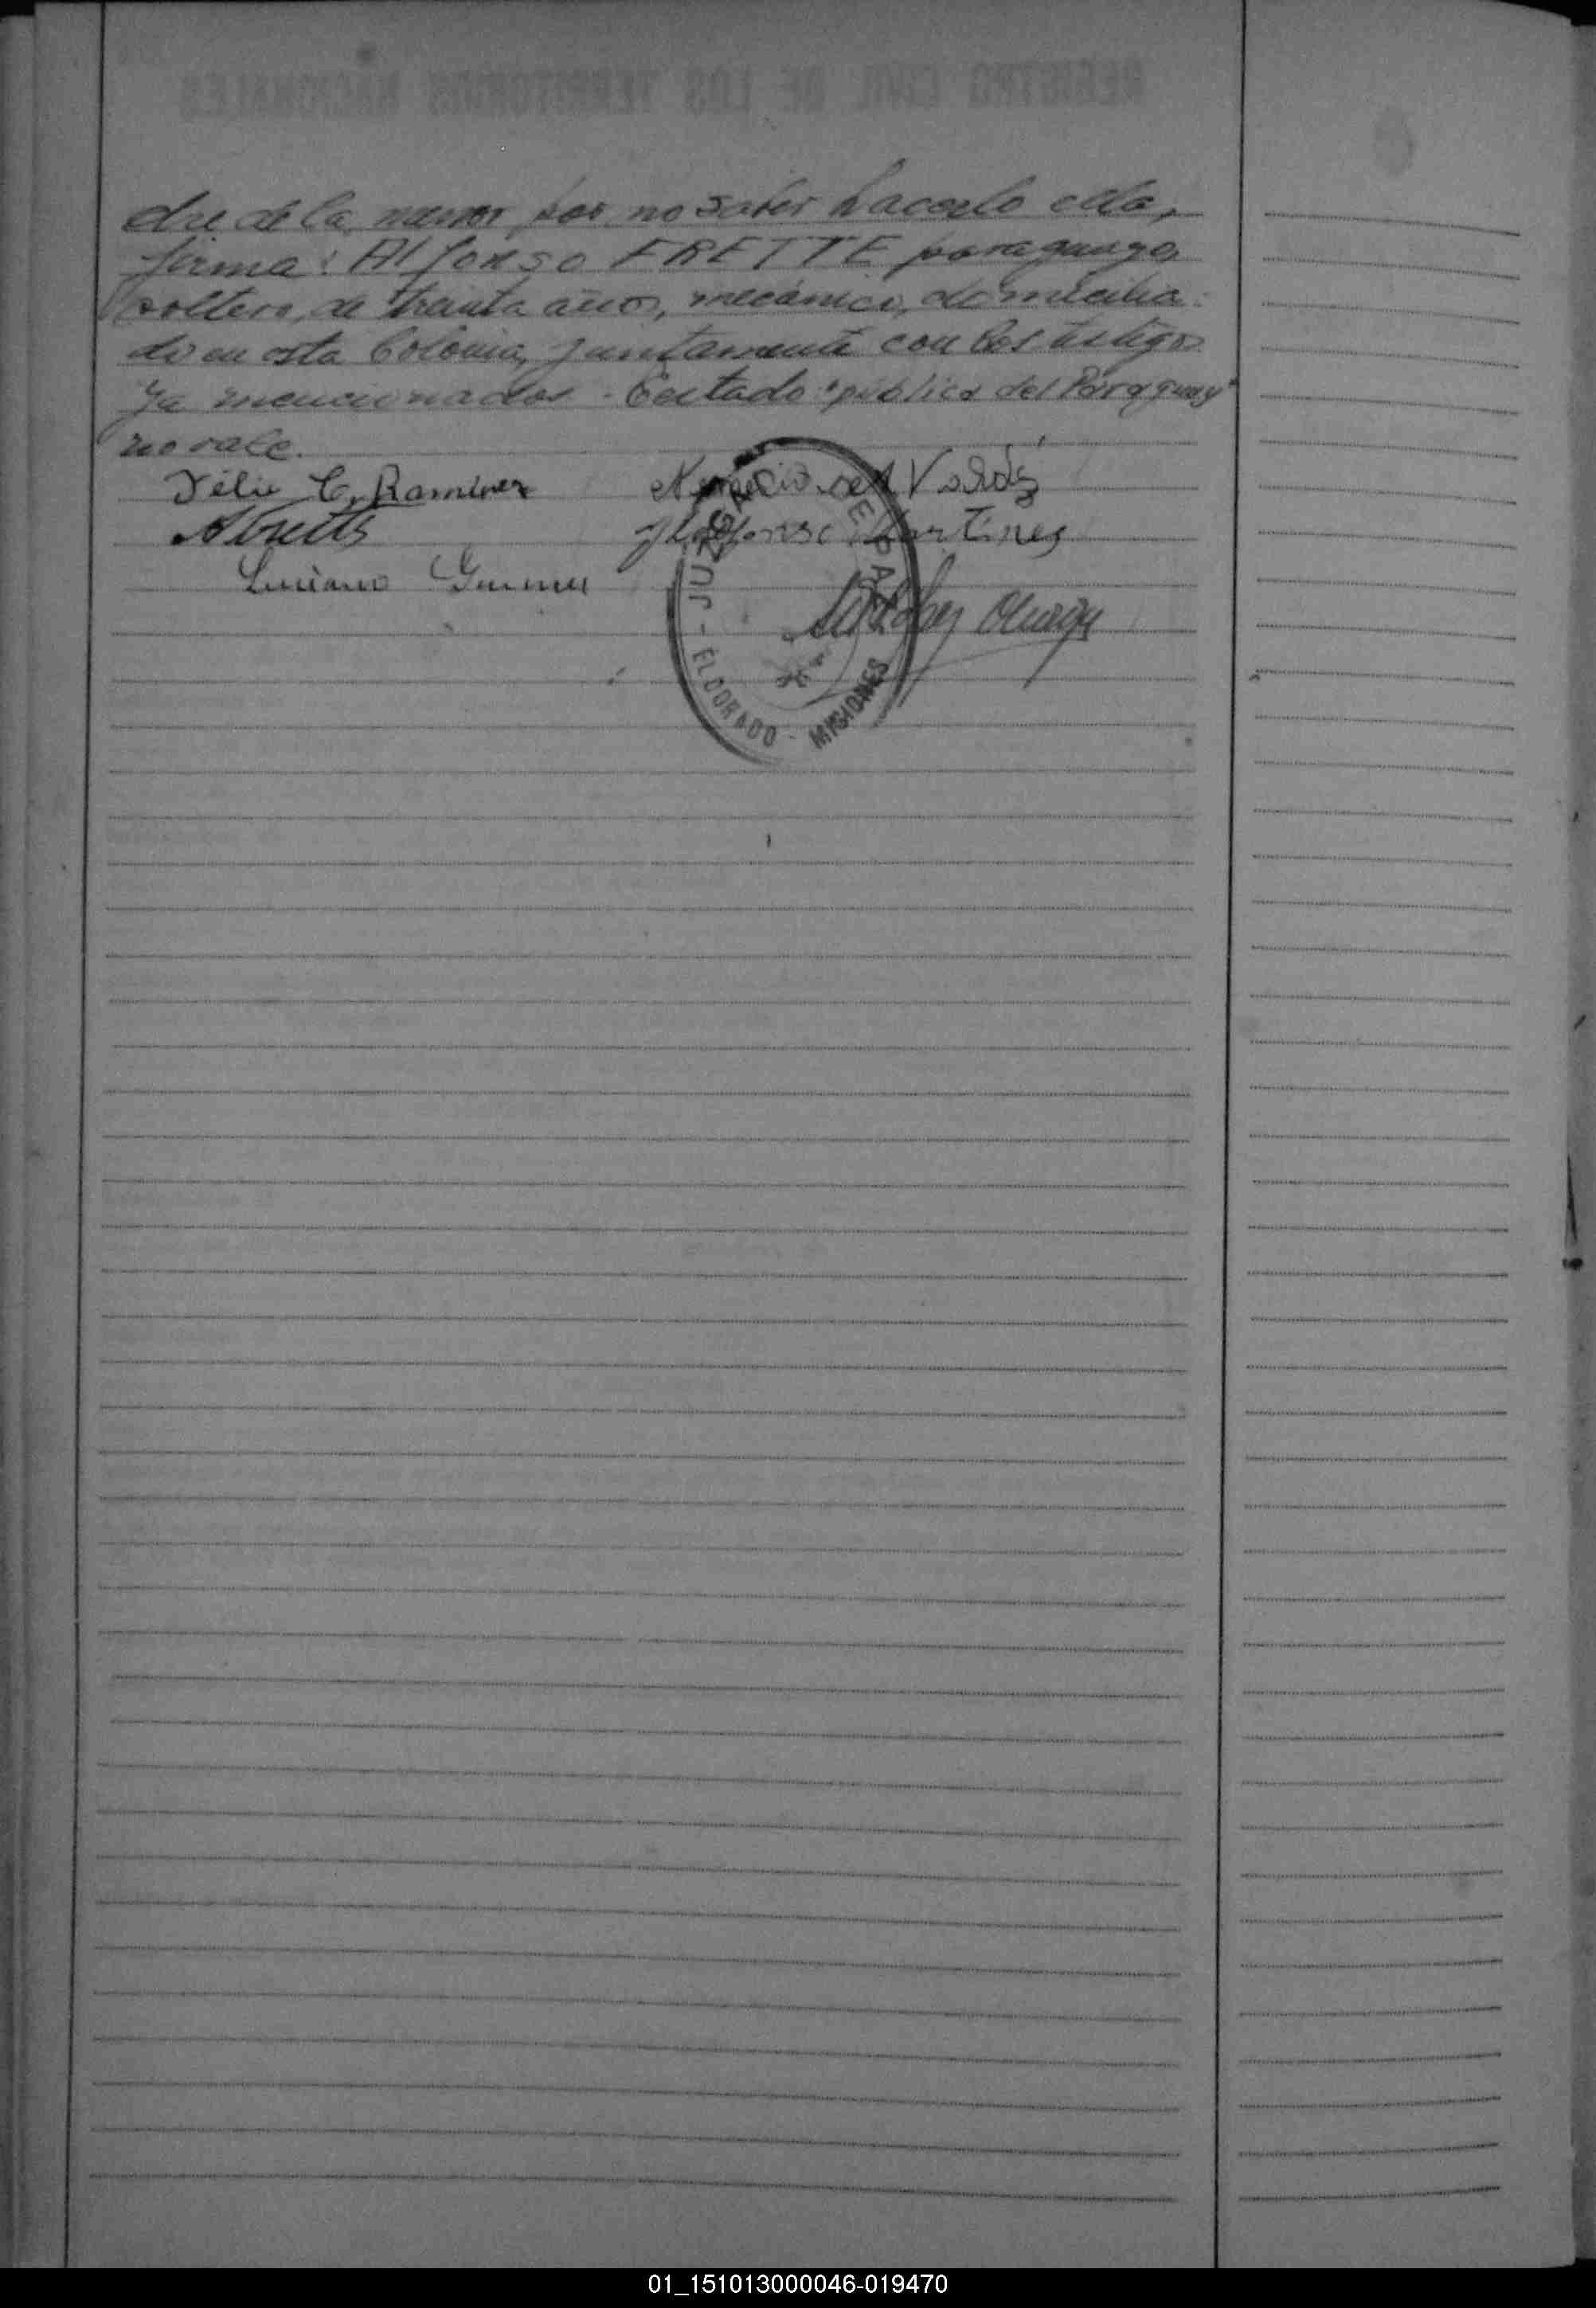 dre de la menor por no saber hacerlo ella,
firma: Alfonso FRETTE paraguayo,
soltero, de treinta años, mecánico, domicilia-
do en esta Colonia, juntamente con los testigos
ya mencionados - Testado "pública del Paraguay"
no vale.
Félix C. Ramírez
A Frette
Ildefonso Martínez
Luciano
JUZGADO DE PAZ - ELDORADO - MISIONES
01_151013000046-019470